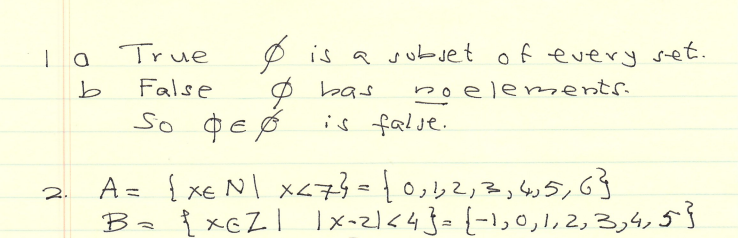 1 a True ∅ is a subset of every set.
b False ∅ has no elements.
So ∅∈∅ is false.
2. A = { x∈N | x<7} = { 0,1,2,3,4,5,6}
B = { x∈Z | |x-2|<4} = {-1,0,1,2,3,4,5}